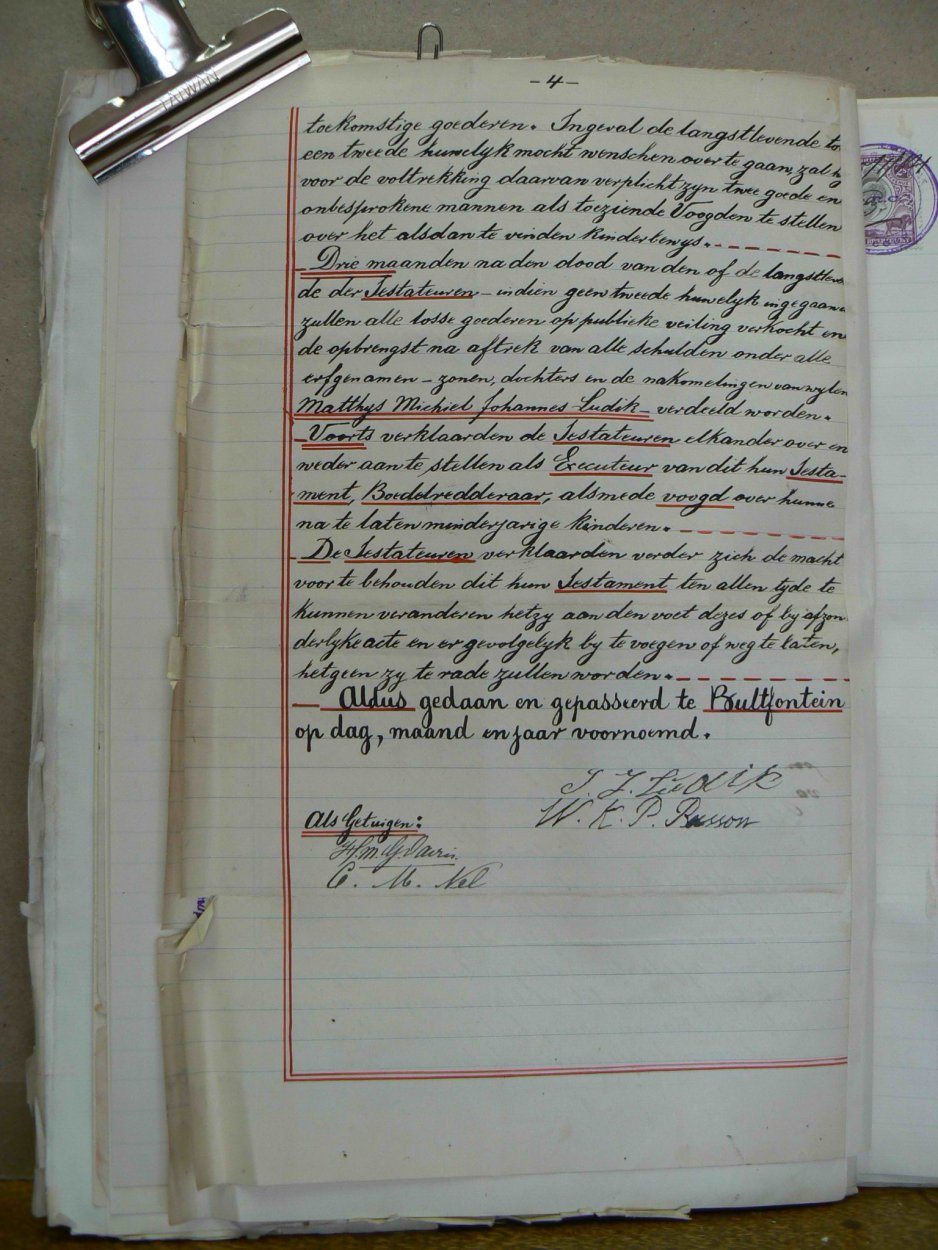 TAIWAN
-4-
toekomstige goederen. Ingeval de langstlevende to
een tweede huwelyk mocht wenschen over te gaan, zal hy
voor de voltrekking daarvan verplicht zyn twee goede en
onbesprokene mannen als toeziende Voogden te stellen
over het alsdan te vinden kinderbewys.
Drie maanden na den dood van den of de langstleven
de der Testateuren - indien geen tweede huwelyk ingegaan
zullen alle losse goederen op publieke veiling verkocht en
de opbrengst na aftrek van alle schulden onder alle
erfgenamen - zonen, dochters en de nakomelingen van wylen
Matthys Michiel Johannes Ludik - verdeeld worden.
Voorts verklaarden de Testateuren elkander over en
weder aan te stellen als Executeur van dit hun Testa-
ment, Boedelredderaar, alsmede voogd over hunne
na te laten minderjarige kinderen.
De Testateuren verklaarden verder zich de macht
voor te behouden dit hun Testament ten allen tyde te
kunnen veranderen hetzy aan den voet dezes of by afzon
derlyke acte en er gevolgelyk by te voegen of weg te laten,
hetgeen zy te rade zullen worden.
Aldus gedaan en gepasseerd te Bultfontein
op dag, maand en jaar voornoemd.
J. J. Ludik
W. K. P. Basson
Als Getuigen:
C. M. Nel